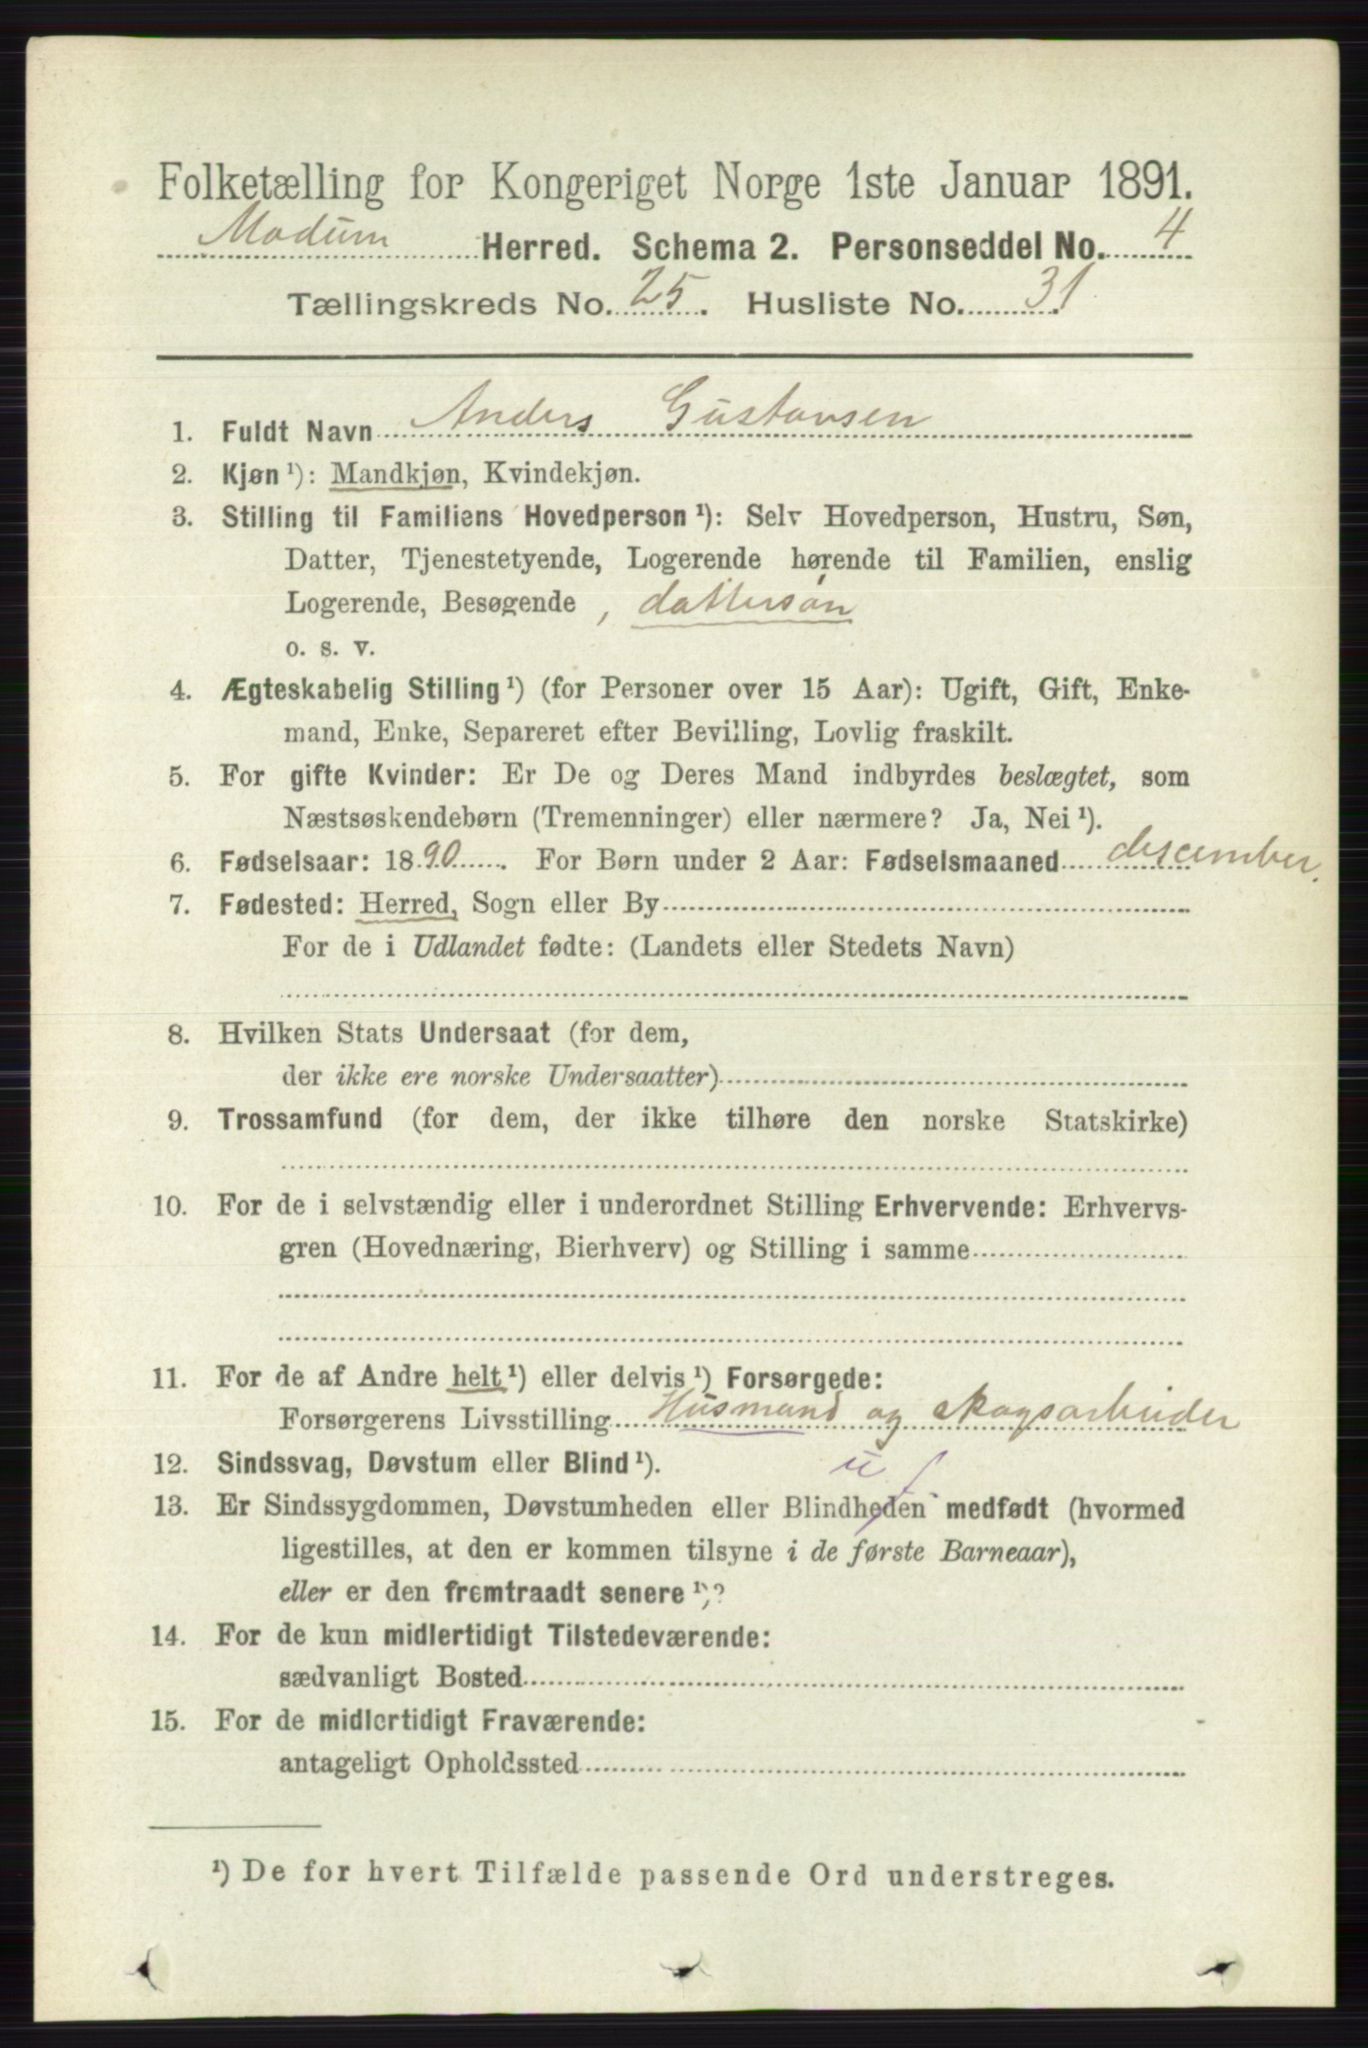 Folketælling for Kongeriget Norge 1ste Januar 1891.
Modum Herred. Schema 2. Personseddel No. 4
Tællingskreds No. 25. Husliste No. 31
1. Fuldt Navn Anders Gustavsen
2. Kjøn ¹): Mandkjøn, Kvindekjøn.
3. Stilling til Familiens Hovedperson ¹): Selv Hovedperson, Hustru, Søn,
Datter, Tjenestetyende, Logerende hørende til Familien, enslig
Logerende, Besøgende , dattersøn
o. s. v.
4. Ægteskabelig Stilling ¹) (for Personer over 15 Aar): Ugift, Gift, Enke-
mand, Enke, Separeret efter Bevilling, Lovlig fraskilt.
5. For gifte Kvinder: Er De og Deres Mand indbyrdes beslægtet, som
Næstsøskendebørn (Tremenninger) eller nærmere? Ja, Nei ¹).
6. Fødselsaar: 1890. For Børn under 2 Aar: Fødselsmaaned descember.
7. Fødested: Herred, Sogn eller By
For de i Udlandet fødte: (Landets eller Stedets Navn)
8. Hvilken Stats Undersaat (for dem,
der ikke ere norske Undersaatter)
9. Trossamfund (for dem, der ikke tilhøre den norske Statskirke)
10. For de i selvstændig eller i underordnet Stilling Erhvervende: Erhvervs-
gren (Hovednæring, Bierhverv) og Stilling i samme
11. For de af Andre helt ¹) eller delvis ¹) Forsørgede:
Forsørgerens Livsstilling Husmand og skogsarbeider
12. Sindssvag, Døvstum eller Blind ¹). u f
13. Er Sindssygdommen, Døvstumheden eller Blindheden medfødt (hvormed
ligestilles, at den er kommen tilsyne i de første Barneaar),
eller er den fremtraadt senere ¹)?
14. For de kun midlertidigt Tilstedeværende:
sædvanligt Bosted
15. For de midlertidigt Fraværende:
antageligt Opholdssted
¹) De for hvert Tilfælde passende Ord understreges.